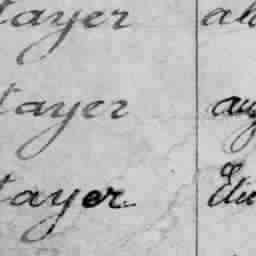 tayer al
tayer aug
tayer Eliz